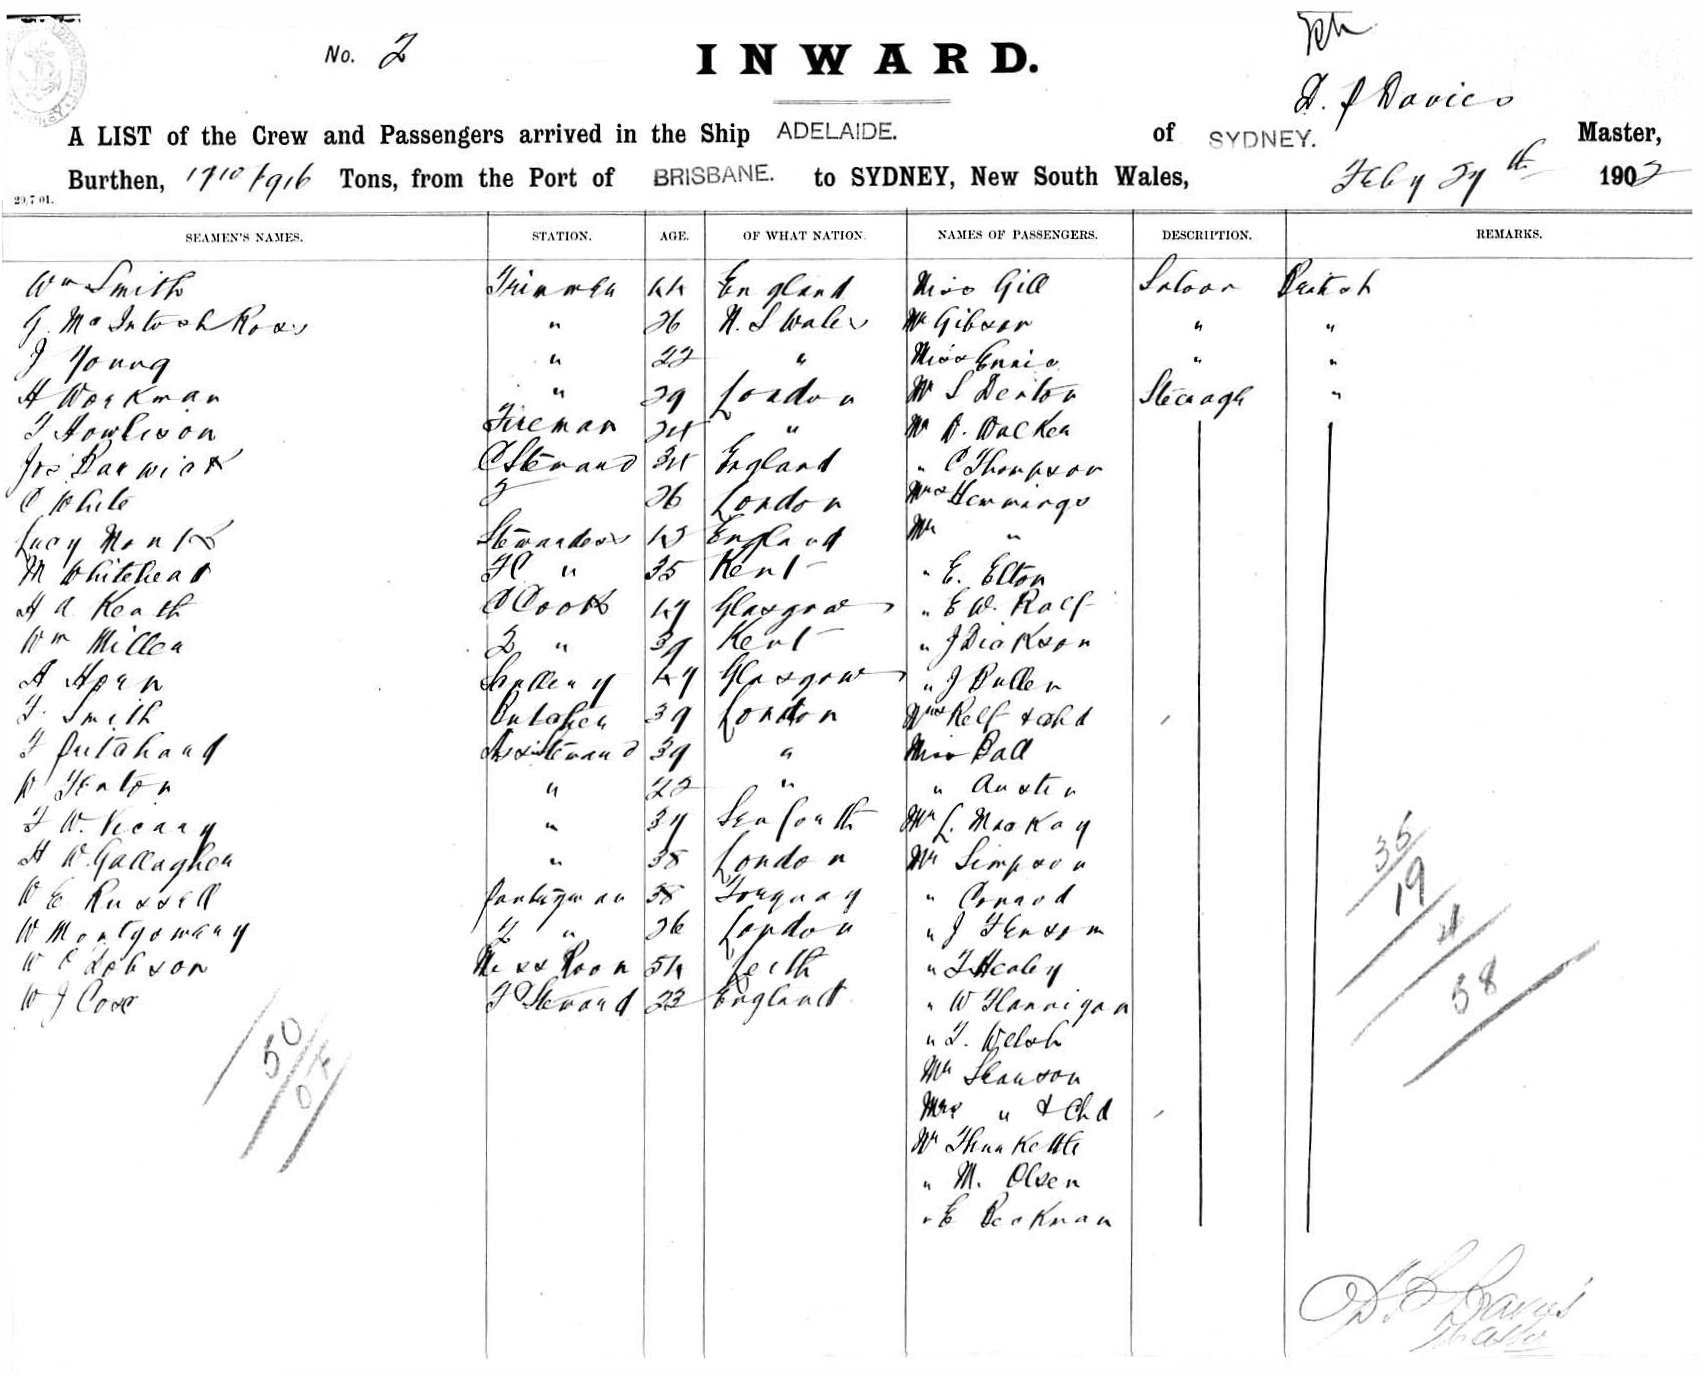 No. 2
INWARD.
D. J Davies
A LIST of the Crew and Passengers arrived in the Ship ADELAIDE. of SYDNEY. Master,
Burthen, 1710/1916 Tons, from the Port of BRISBANE. to SYDNEY, New South Wales, Feby 27th 1902
20.7.01.
SEAMEN'S NAMES. STATION. AGE. OF WHAT NATION. NAMES OF PASSENGERS. DESCRIPTION. REMARKS.
Wm Smith Trimmer 44 England Miss Gill Saloon British
G. McIntosh Ross " 26 N. S Wales Mr Gibson " "
J Young " 22 " Miss Ennis " "
H Workman " 29 London Mr S Denton Steerage "
T Howlison Fireman 24 " Mr D. Dacker
Jos Barwick C Steward 34 England " C Thompson
C White 2 26 London Mrs Hemmings
Lucy Monks Stewardess 42 England Mr "
M Whitehead FC " 35 Kent " E. Elton
H A Keath C Cook 47 Glasgow " E W. Ralf
Wm Miller 2 " 39 Kent " J Dickson
A Horn Scullery 47 Glasgow " J Buller
F. Smith Butcher 39 London Mrs Relf & chd
F Pritchard Ass Steward 39 " Miss Ball
W Fenton " 22 " " Austin
F W. Vicary " 37 Seaforth Mr L. MacKay
H W. Gallagher " 38 London Mr Simpson
W E Russell Pantryman 38 Torquay " Conard
W Montgomery 2 " 26 London " J Fensom
W C Dobson Mess Room 54 Leith " T Healey
W J Cose F C Steward 23 England " W Flannigan
" T. Welsh
Mr Seanson
Mrs " & Chd
Mr Thurkettle
" M. Olsen
" E Beckman
35
19
4
58
50